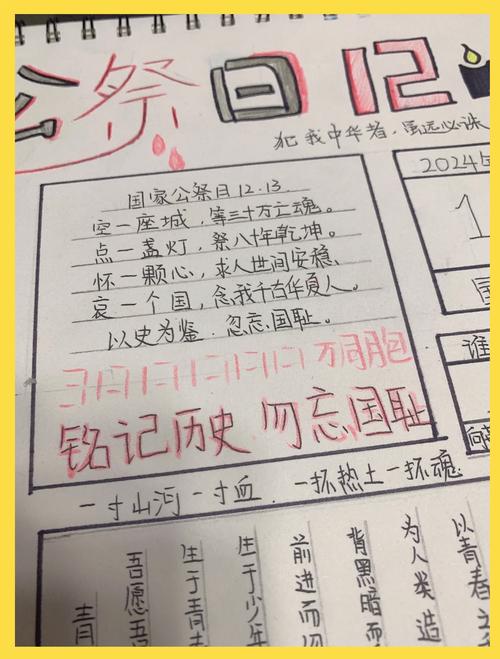 公祭日 12
犯我中华者，虽远必诛
国家公祭日 12.13
空一座城，等三十万亡魂。
点一盏灯，祭八十年乾坤。
怀一颗心，求人世间安稳、
哀一个国，念我千古华夏人。
以史为鉴.忽忘.国耻。
万同胞
铭记历史 勿忘国耻
2024年
1
谁
一寸山河一寸血.一抔热土一抔魂
以青春
为人类造
背黑暗而
前进而
生于少年
生于青
吾愿吾
青